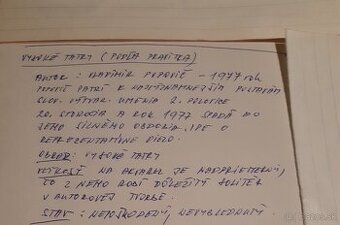 VYSOKÉ TATRY (PODĽA PRAVÍTKA)
AUTOR: VLADIMÍR POPOVIČ – 1977 rok
POPOVIČ PATRÍ K NAJVÝZNAMNEJŠÍM POSTAVÁM
SLOV. VÝTVAR. UMENIA 2. POLOVICE
20. STOROČIA A ROK 1977 SPADÁ DO
JEHO SILNÉHO OBDOBIA. IDE O
REPREZENTATÍVNE DIELO.
OBRAZ: VYSOKÉ TATRY
VEĽKOSŤ NA AKVAREL JE NADPRIEMERNÁ,
ČO Z NEHO ROBÍ DÔLEŽITÝ SOLITÉR
V AUTOROVEJ TVORBE.
STAV: NEPOŠKODENÝ, NEVYBLEDNUTÝ
bazos.sk